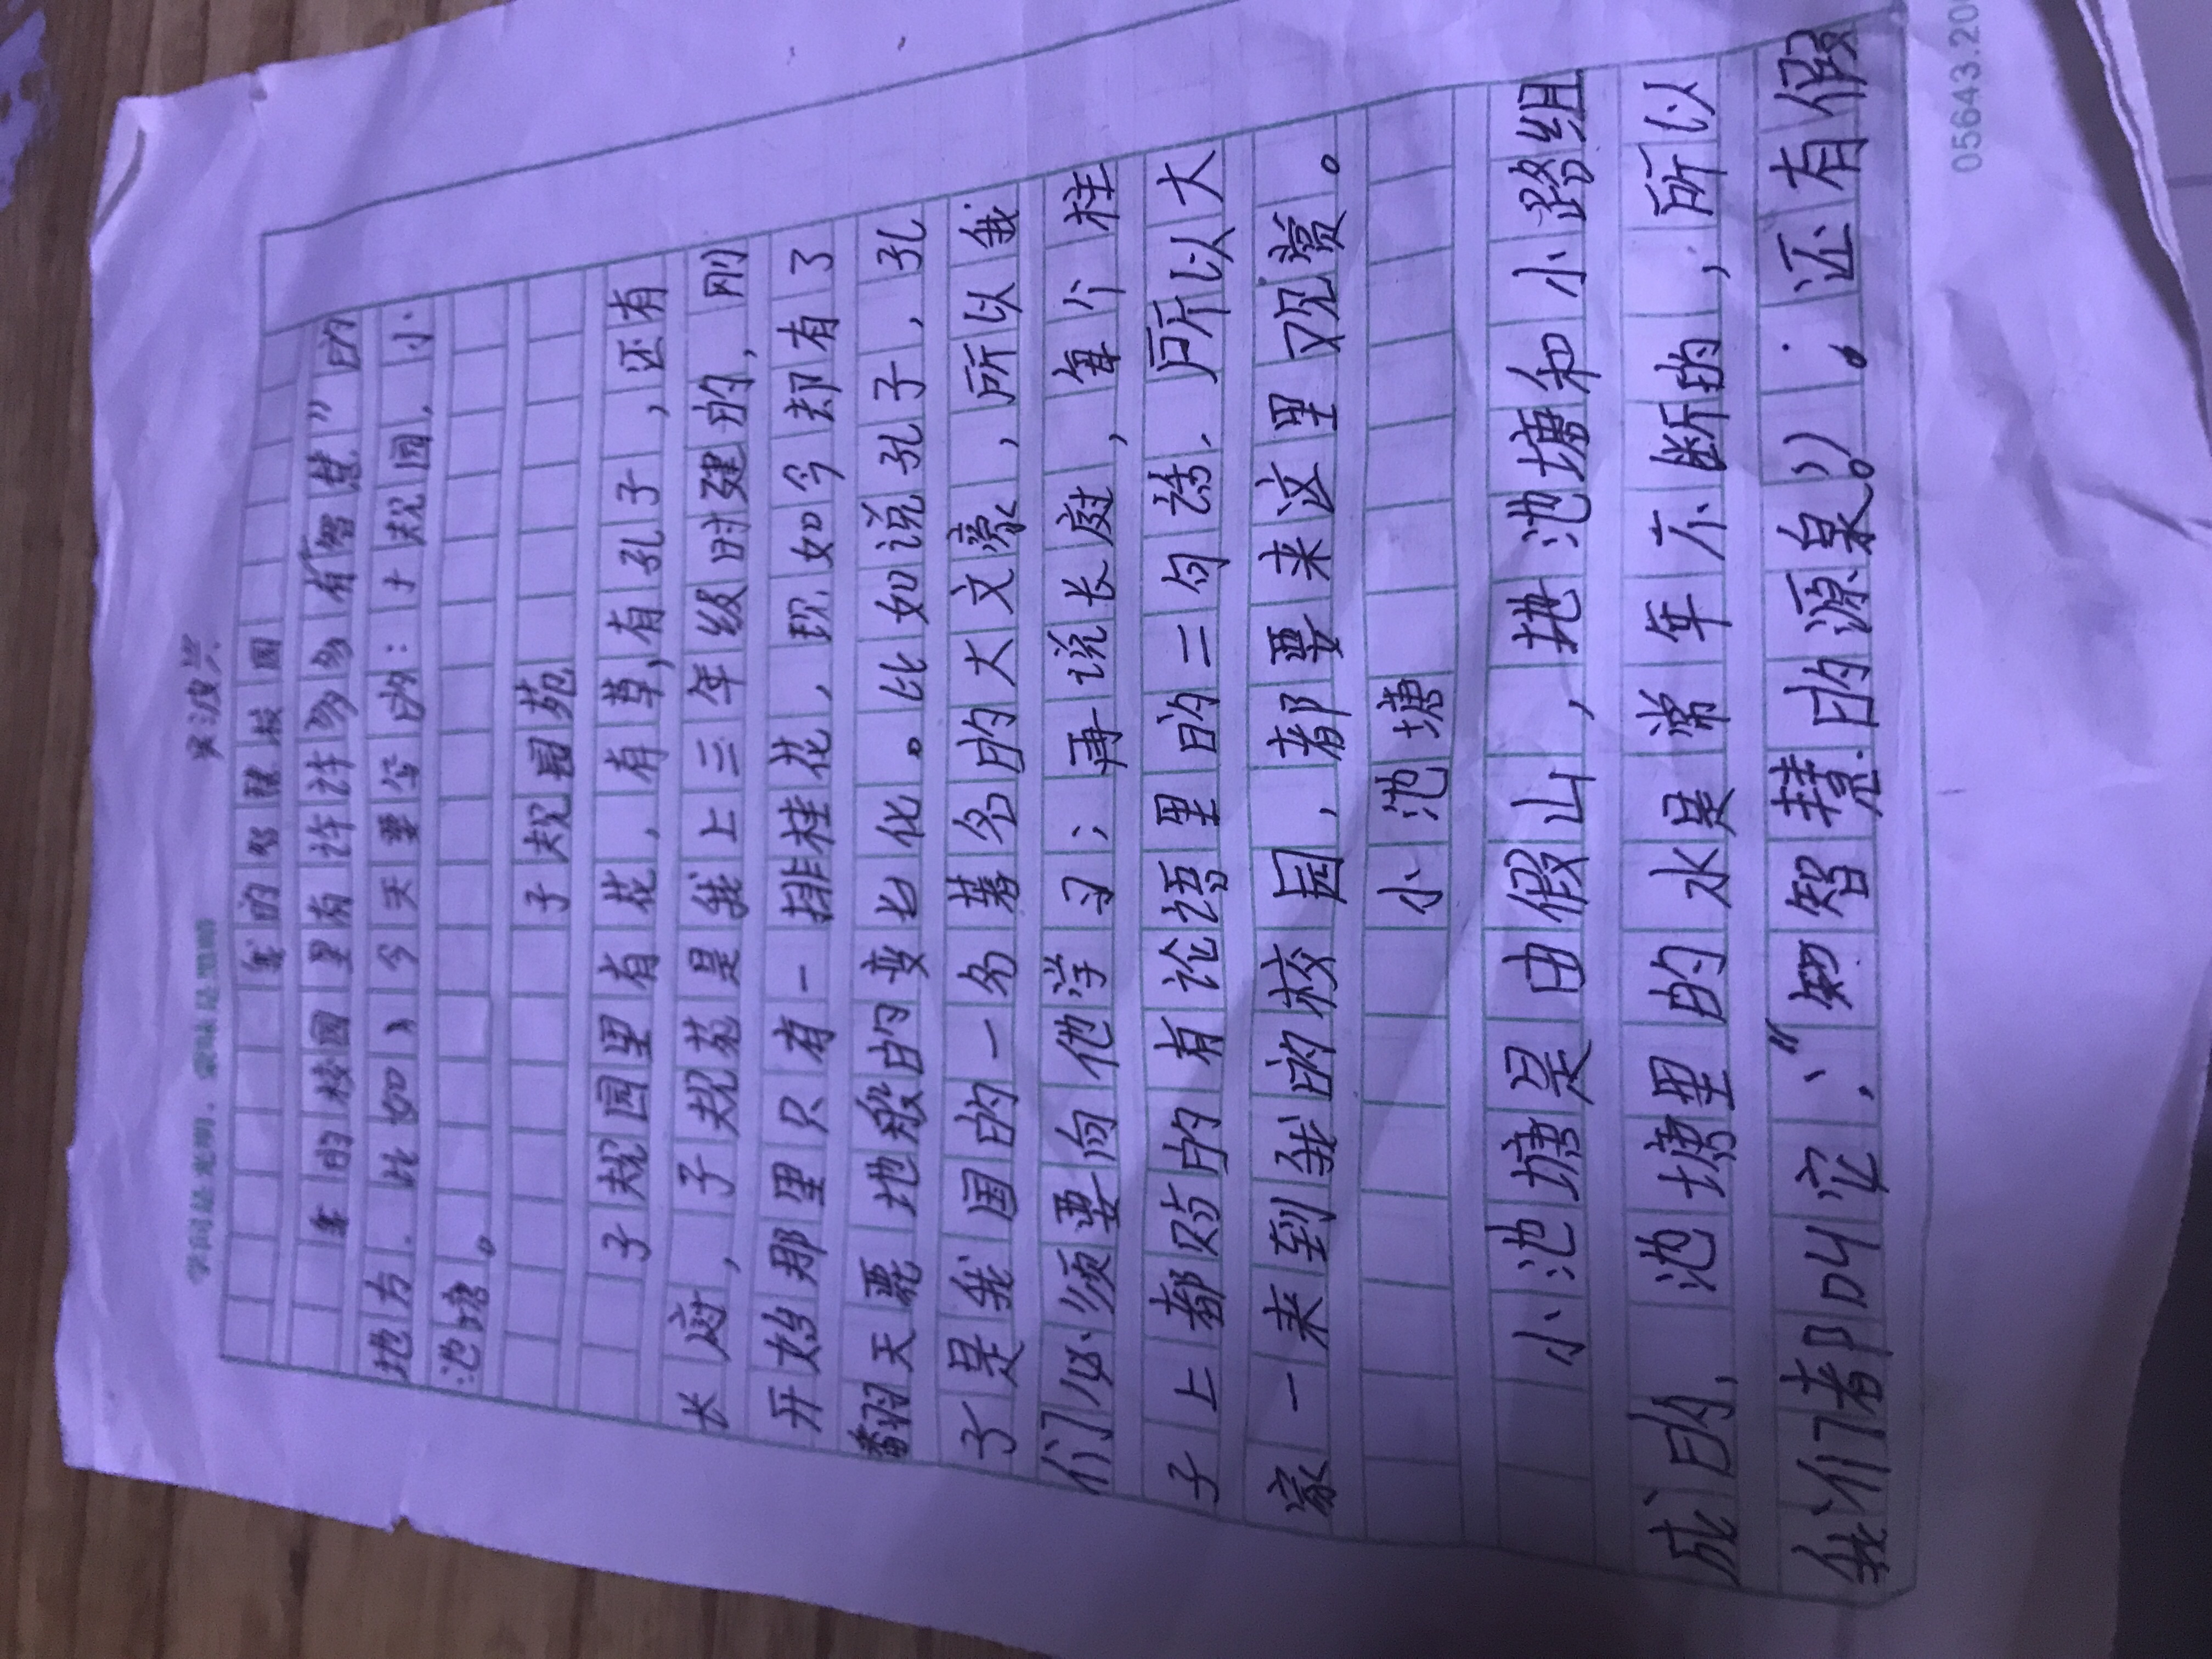 我的智慧校园
我的校园里有许许多多有“智慧”的
地方.比如：今天要写的：子规园，小
池塘。
子规园苑
子规园里有花，有草，有孔子，还有
长廊，子规苑是我上三年级时建的，刚
开始那里只有一排桂花，现如今却有了
翻天覆地般的变化。比如说孔子，孔
子是我国的一名著名的大文豪，所以我
们必须要向他学习；再说长廊，每个柱
子上都贴的有论语里的二句话.所以大
家一来到我的校园，都要来这里观赏。
小池塘
小池塘是由假山，地池塘和小路组
成的，池塘里的水是常年不断的，所以
我们都叫它，“智慧的源泉”。；还有假
05643.20